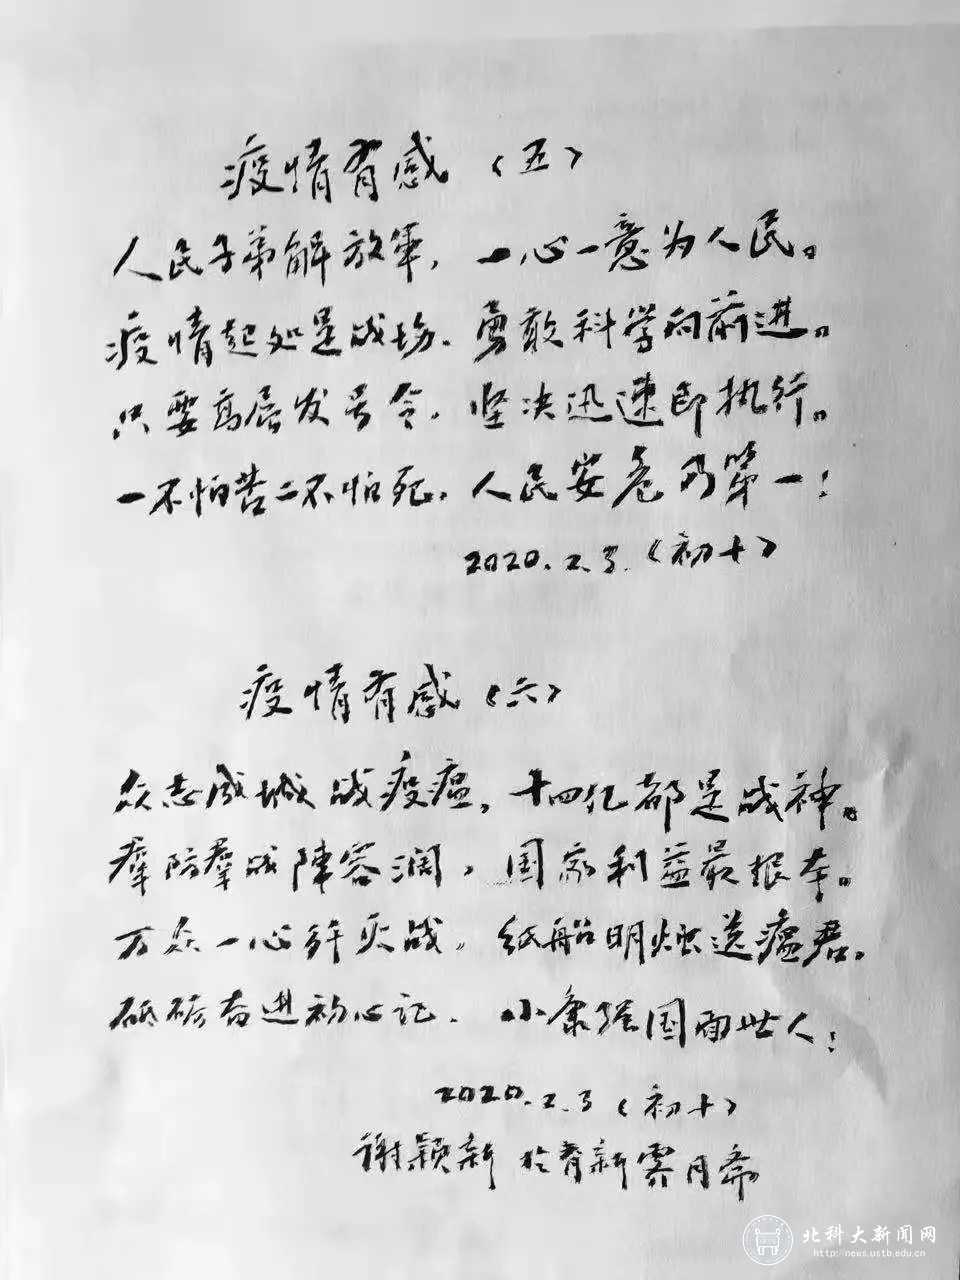 疫情有感（五）
人民子弟解放军，一心一意为人民。
疫情起处是战场，勇敢科学向前进。
只要高层发号令，坚决迅速即执行。
一不怕苦二不怕死，人民安危乃第一！
2020.2.3.（初十）
疫情有感（六）
众志成城战疫瘟，十四亿都是战神。
羣防羣战陣容阔，国家利益最根本。
万众一心歼灭战，纸船明烛送瘟君。
砥砺奋进初心记，小康强国面世人！
2020.2.3（初十）
谢颖新 於育新霁月斋
北科大新闻网
http: news.ustb.edu.cn